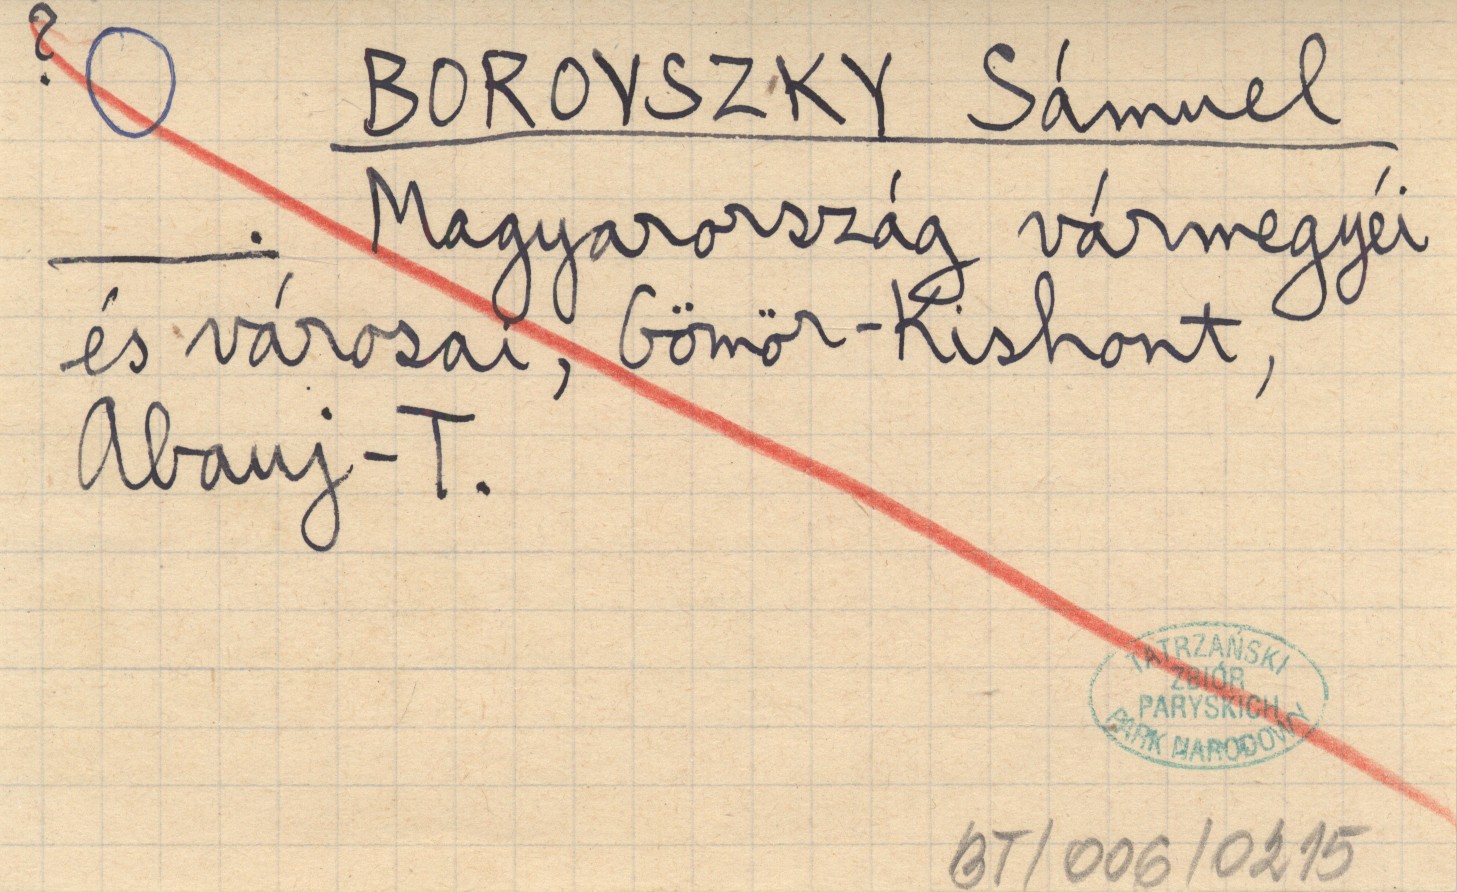 ?
BOROVSZKY Sámuel
. Magyarország vármegyéi
és városai, Gömör-Kishont,
Abauj-T.
TATRZAŃSKI
ZBIÓR
PARYSKICH
PARK NARODOWY
BT/006/0215